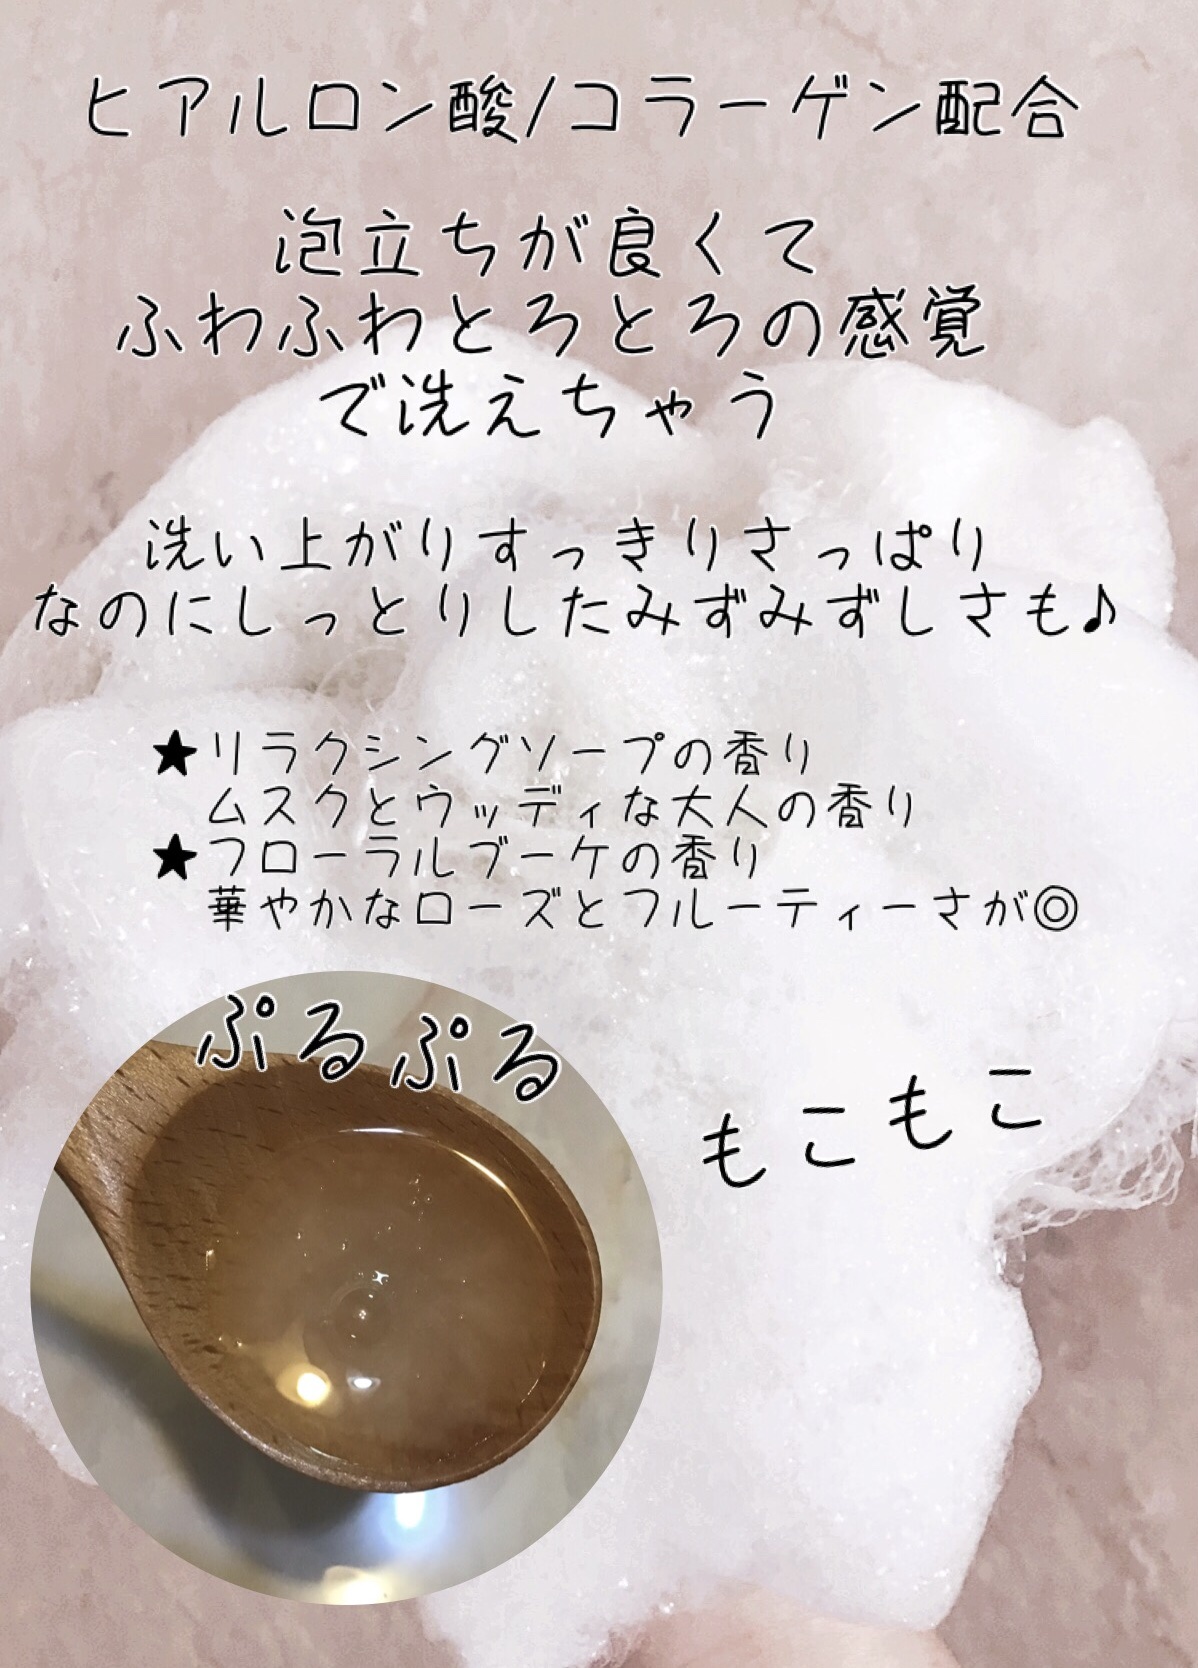 ヒアルロン酸/コラーゲン配合
泡立ちが良くて
ふわふわとろとろの感覚
で洗えちゃう
洗い上がりすっきりさっぱり
なのにしっとりしたみずみずしさも♪
★リラクシングソープの香り
ムスクとウッディな大人の香り
★フローラルブーケの香り
華やかなローズとフルーティーさが◎
ぷるぷる
もこもこ